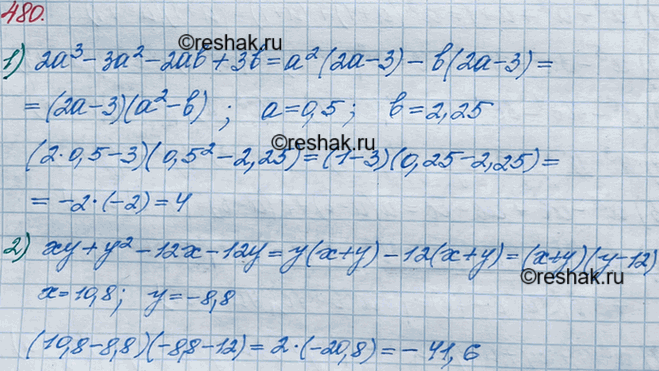 480.
©reshak.ru
1) 2a³-3a²-2ab+3b=a²(2a-3)-b(2a-3)=
=(2a-3)(a²-b); a=0,5; b=2,25
©reshak.ru
(2·0,5-3)(0,5²-2,25)=(1-3)(0,25-2,25)=
=-2·(-2)=4
2) xy+y²-12x-12y=y(x+y)-12(x+y)=(x+y)(y-12)
©reshak.ru
x=10,8; y=-8,8
(10,8-8,8)(-8,8-12)=2·(-20,8)=-41,6